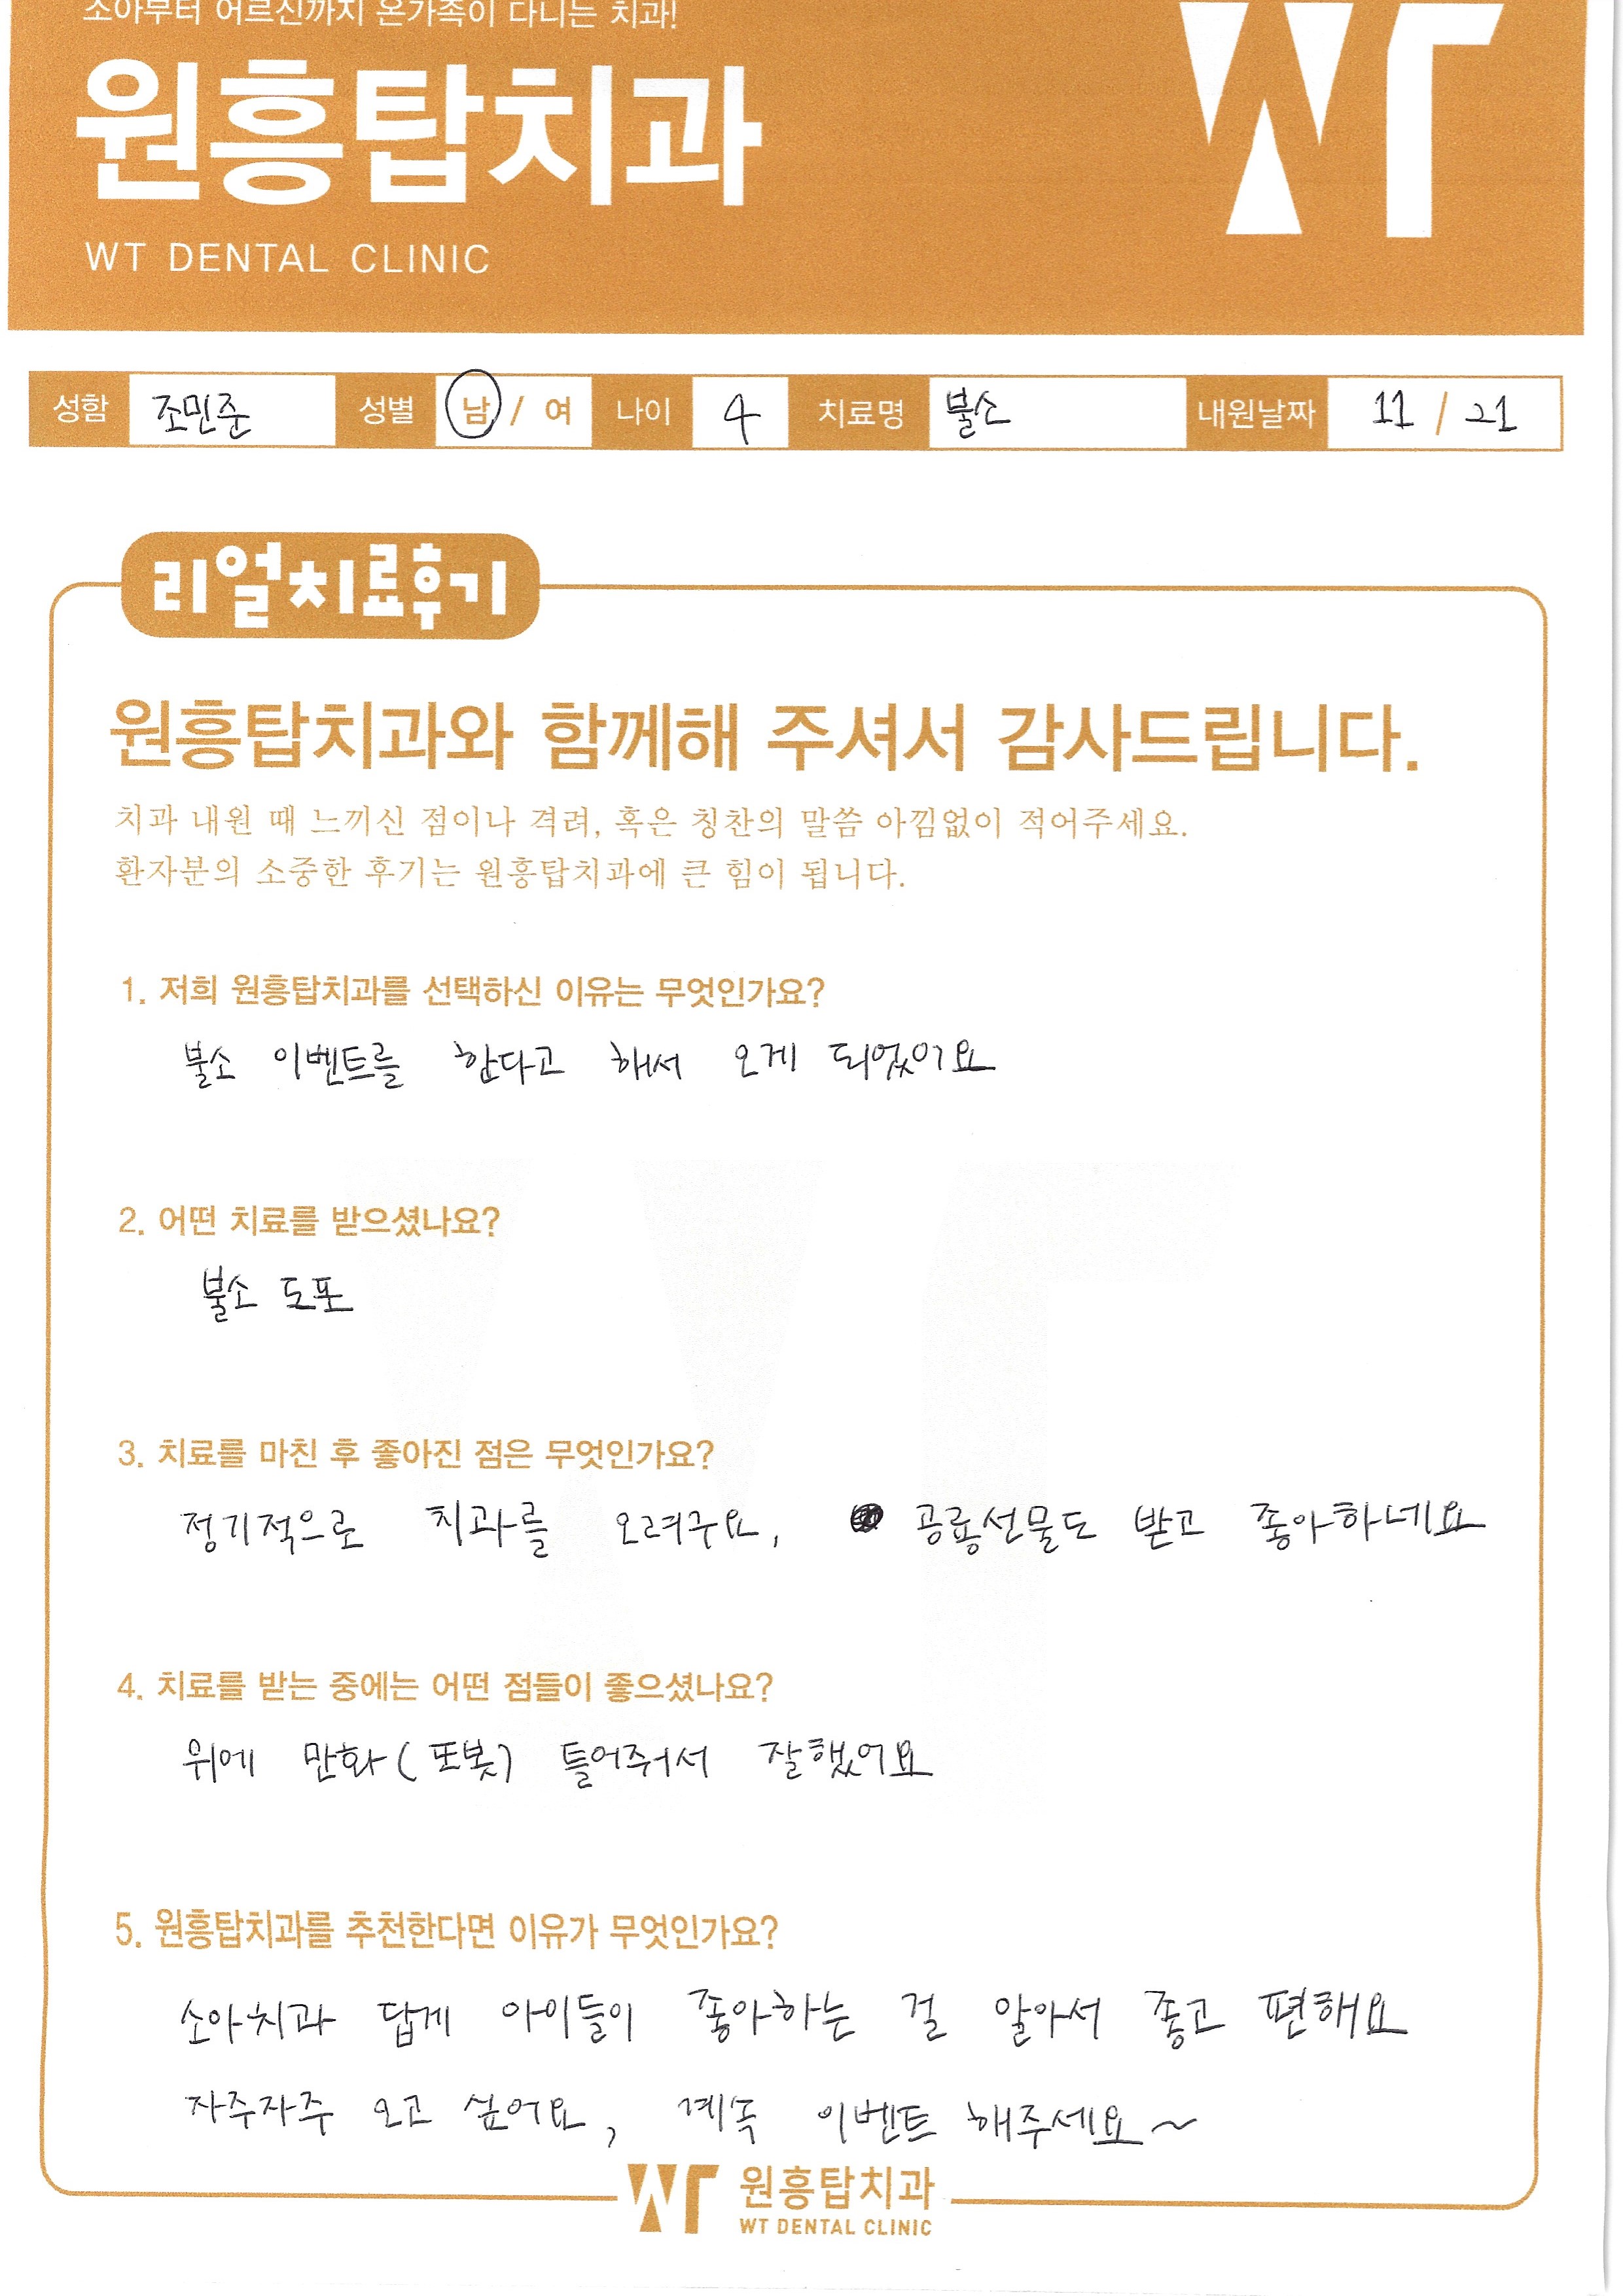 소아부터 어르신까지 온가족이 다니는 치과!
원흥탑치과
WT
WT DENTAL CLINIC
성함 조민준 성별 남 / 여 나이 4 치료명 불소 내원날짜 11 / 21
리얼치료후기
원흥탑치과와 함께해 주셔서 감사드립니다.
치과 내원 때 느끼신 점이나 격려, 혹은 칭찬의 말씀 아낌없이 적어주세요.
환자분의 소중한 후기는 원흥탑치과에 큰 힘이 됩니다.
1. 저희 원흥탑치과를 선택하신 이유는 무엇인가요?
불소 이벤트를 한다고 해서 오게 되었어요
2. 어떤 치료를 받으셨나요?
불소 도포
3. 치료를 마친 후 좋아진 점은 무엇인가요?
정기적으로 치과를 오려구요, 공룡선물도 받고 좋아하네요
4. 치료를 받는 중에는 어떤 점들이 좋으셨나요?
위에 만화(또봇) 틀어줘서 잘했어요
5. 원흥탑치과를 추천한다면 이유가 무엇인가요?
소아치과 답게 아이들이 좋아하는 걸 알아서 좋고 편해요
자주자주 오고 싶어요, 계속 이벤트 해주세요~
WT 원흥탑치과
WT DENTAL CLINIC